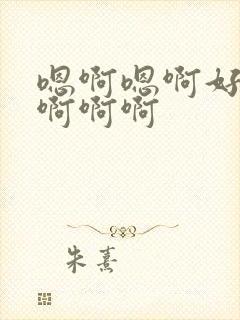 嗯啊嗯啊好
啊啊啊
朱熹